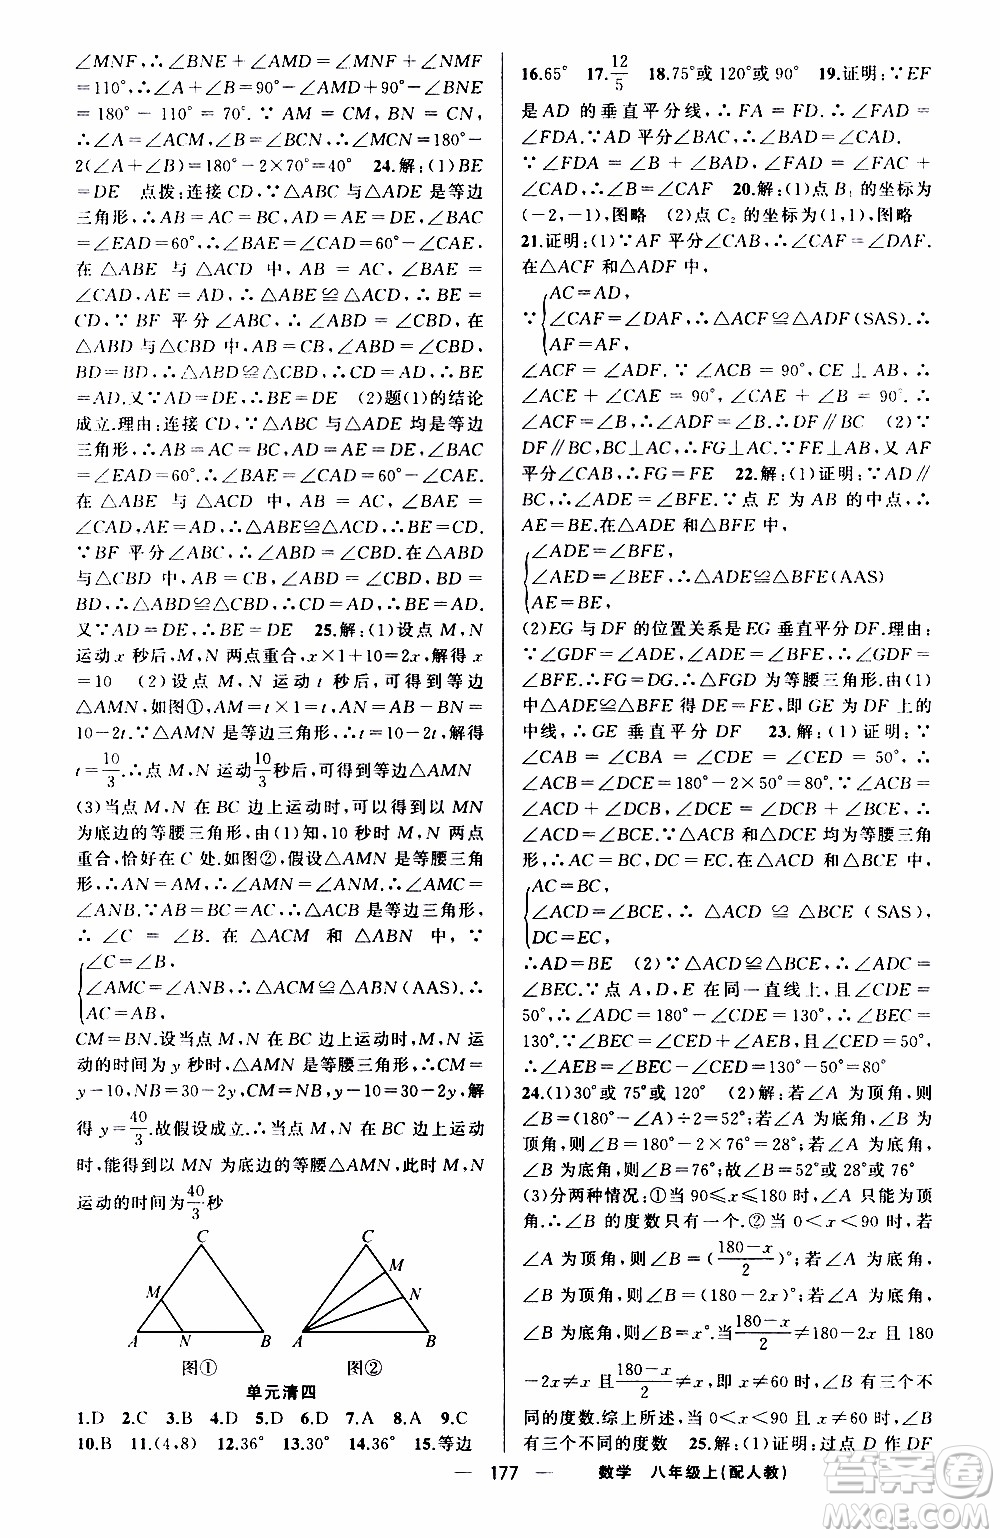 ∠MNF,∴∠BNE+∠AMD=∠MNF+∠ANM
=110°,∴∠A+∠B=90°-∠AMD+90°-∠BNE
=180°-110°=70°.∵AM=CM,BN=CN,
∴∠A=∠ACM,∠B=∠BCN,∴∠MCN=180°-
2(∠A+∠B)=180°-2×70°=40° 24.解:(1)BE
=DE 点拨:连接CD,∵△ABC与△ADE是等边
三角形,∴AB=AC=BC,AD=AE=DE,∠BAC
=∠EAD=60°,∴∠BAE=∠CAD=60°-∠CAE.
在△ABE与△ACD中,AB=AC,∠BAE=
∠CAD,AE=AD,∴△ABE≌△ACD,∴BE=
CD,∵BF平分∠ABC,∴∠ABD=∠CBD,在
△ABD与△CBD中,AB=CB,∠ABD=∠CBD,
BD=BD,∴△ABD≌△CBD,∴CD=AD,∴BE
=AD.又∵AD=DE,∴BE=DE (2)题(1)的结论
成立.理由:连接CD,∵△ABC与△ADE均是等边三
角形,∴AB=AC=BC,AD=AE=DE,∠BAC
=∠EAD=60°,∴∠BAE=∠CAD=60°+∠CAE.
在△ABE与△ACD中,AB=AC,∠BAE=
∠CAD,AE=AD,∴△ABE≌△ACD,∴BE=CD.
∵BF平分∠ABC,∴∠ABD=∠CBD,在△ABD
与△CBD中,AB=CB,∠ABD=∠CBD,BD=
BD,∴△ABD≌△CBD(SAS),∴CD=AD,∴BE=AD.
又∵AD=DE,∴BE=DE 25.解:(1)设点M,N
运动x秒后,M,N两点重合,x×1+10=2x,解得x
=10 (2)设点M,N运动t秒后,可得到等边
△AMN,如图①,AM=t×1=t,AN=AB-BN=
10-2t.∵△AMN是等边三角形,∴t=10-2t,解得
t=10/3.∴点M,N运动10/3秒后,可得到等边△AMN
(3)当点M,N在BC边上运动时,可以得到以MN
为底边的等腰三角形,由(1)知,10秒时M,N两点
重合,恰好在C处.如图②,假设△AMN是等腰三角
形,∴AN=AM,∴∠AMN=∠ANM,∴∠AMC=
∠ANB.∵AB=BC=AC,∴△ACB是等边三角形,
∴∠C=∠B.在△ACM和△ABN中,∵
∠C=∠B,
∠AMC=∠ANB,∴△ACM≌△ABN(AAS).∴
AC=AB,
CM=BN.设当点M,N在BC边上运动时,M,N运
动的时间为y秒时,△AMN是等腰三角形,∴CM=
y-10,NB=30-2y,CM=NB,y-10=30-2y,解
得y=40/3.故假设成立.∴当点M,N在BC边上运动
时,能得到以MN为底边的等腰△AMN,此时M,N
运动的时间为40/3秒
C
M
A N B
图①
C
M
N
A B
图②
单元清四
1.D 2.C 3.B 4.B 5.D 6.D 7.A 8.A 9.C
10.B 11.(4,8) 12.36° 13.30° 14.36° 15.等边
16.65° 17.12/5 18.75°或120°或90° 19.证明:∵EF
是AD的垂直平分线,∴FA=FD.∴∠FAD=
∠FDA.∵AD平分∠BAC,∴∠BAD=∠CAD.
∵∠FDA=∠B+∠BAD,∠FAD=∠FAC+
∠CAD,∴∠B=∠FAC 20.解:(1)点B₁的坐标为
(-2,-1),图略 (2)点C₂的坐标为(1,1),图略
21.证明:(1)∵AF平分∠CAB,∴∠CAF=∠DAF.
在△ACF和△ADF中,
∵
AC=AD,
∠CAF=∠DAF,∴△ACF≌△ADF(SAS).∴
AF=AF,
∠ACF=∠ADF.∵∠ACB=90°,CE⊥AB,∴
∠ACE+∠CAE=90°,∠CAE+∠B=90°.∴
∠ACF=∠B,∴∠ADF=∠B.∴DF∥BC (2)∵
DF∥BC,BC⊥AC,∴FG⊥AC.∵FE⊥AB,又AF
平分∠CAB,∴FG=FE 22.解:(1)证明:∵AD∥
BC,∴∠ADE=∠BFE.∵点E为AB的中点,∴
AE=BE.在△ADE和△BFE中,
∠ADE=∠BFE,
∠AED=∠BEF,∴△ADE≌△BFE(AAS)
AE=BE,
(2)EG与DF的位置关系是EG垂直平分DF.理由:
∵∠GDF=∠ADE,∠ADE=∠BFE,∴∠GDF=
∠BFE.∴FG=DG.∴△FGD为等腰三角形.由(1)
中△ADE≌△BFE得DE=FE,即GE为DF上的
中线,∴GE垂直平分DF 23.解:(1)证明:∵
∠CAB=∠CBA=∠CDE=∠CED=50°,∴
∠ACB=∠DCE=180°-2×50°=80°.∵∠ACB=
∠ACD+∠DCB,∠DCE=∠DCB+∠BCE,∴
∠ACD=∠BCE.∵△ACB和△DCE均为等腰三角
形,∴AC=BC,DC=EC.在△ACD和△BCE中,
AC=BC,
∠ACD=∠BCE,∴△ACD≌△BCE(SAS),
DC=EC,
∴AD=BE (2)∵△ACD≌△BCE,∴∠ADC=
∠BEC.∵点A,D,E在同一直线上,且∠CDE=
50°,∴∠ADC=180°-∠CDE=130°,∴∠BEC=
130°.∵∠BEC=∠CED+∠AEB,∠CED=50°,
∴∠AEB=∠BEC-∠CED=130°-50°=80°
24.(1)30°或75°或120° (2)解:若∠A为顶角,则
∠B=(180°-∠A)÷2=52°;若∠A为底角,∠B为
顶角,则∠B=180°-2×76°=28°;若∠A为底角,
∠B为底角,则∠B=76°;故∠B=52°或28°或76°
(3)分两种情况:①当90≤x<180时,∠A只能为顶
角.∴∠B的度数只有一个.②当0<x<90时,若
∠A为顶角,则∠B=(180-x/2)°;若∠A为底角,
∠B为顶角,则∠B=(180-2x)°;若∠A为底角,
∠B为底角,则∠B=x°.当180-x/2≠180-2x且180
-2x≠x且180-x/2≠x,即x≠60时,∠B有三个不
同的度数.综上所述,当0<x<90且x≠60时,∠B
有三个不同的度数 25.解:(1)证明:过点D作DF
177 数学 八年级上(配人教)
答案圈
MXQE.COM